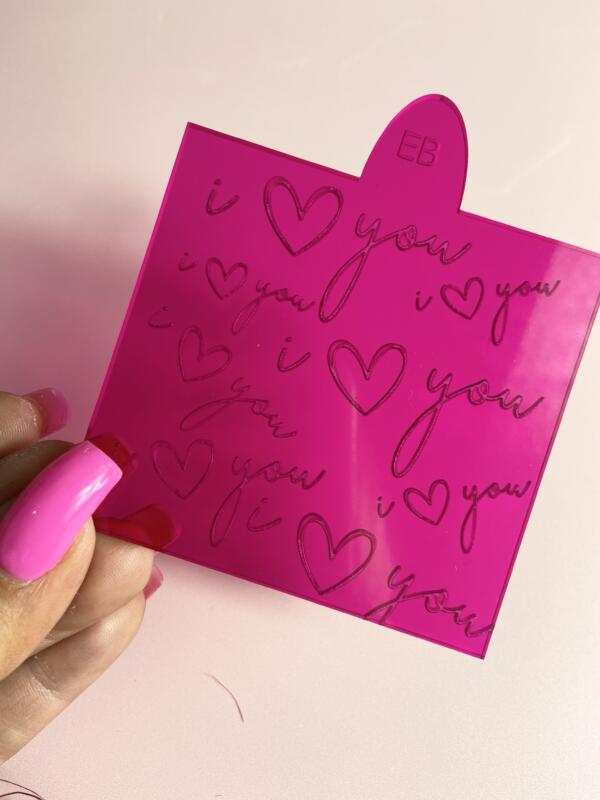 EB
i ♡ you
i ♡ you
i ♡ you
i ♡ you
i ♡ you
♡ you
i ♡ you
i ♡ you